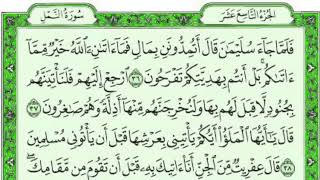 الجُزْءُ التَّاسِعَ عَشَرَ
سُورَةُ النَّمْلِ
فَلَمَّا جَآءَ سُلَيْمَٰنَ قَالَ أَتُمِدُّونَنِ بِمَالٍ فَمَآ ءَاتَىٰنِۦَ ٱللَّهُ خَيْرٌ مِّمَّآ
ءَاتَىٰكُم بَلْ أَنتُم بِهَدِيَّتِكُمْ تَفْرَحُونَ ٣٦ ٱرْجِعْ إِلَيْهِمْ فَلَنَأْتِيَنَّهُم
بِجُنُودٍ لَّا قِبَلَ لَهُم بِهَا وَلَنُخْرِجَنَّهُم مِّنْهَآ أَذِلَّةً وَهُمْ صَٰغِرُونَ ٣٧
قَالَ يَٰٓأَيُّهَا ٱلْمَلَؤُا۟ أَيُّكُمْ يَأْتِينِى بِعَرْشِهَا قَبْلَ أَن يَأْتُونِى مُسْلِمِينَ
٣٨ قَالَ عِفْرِيتٌ مِّنَ ٱلْجِنِّ أَنَا۠ ءَاتِيكَ بِهِۦ قَبْلَ أَن تَقُومَ مِن مَّقَامِكَ